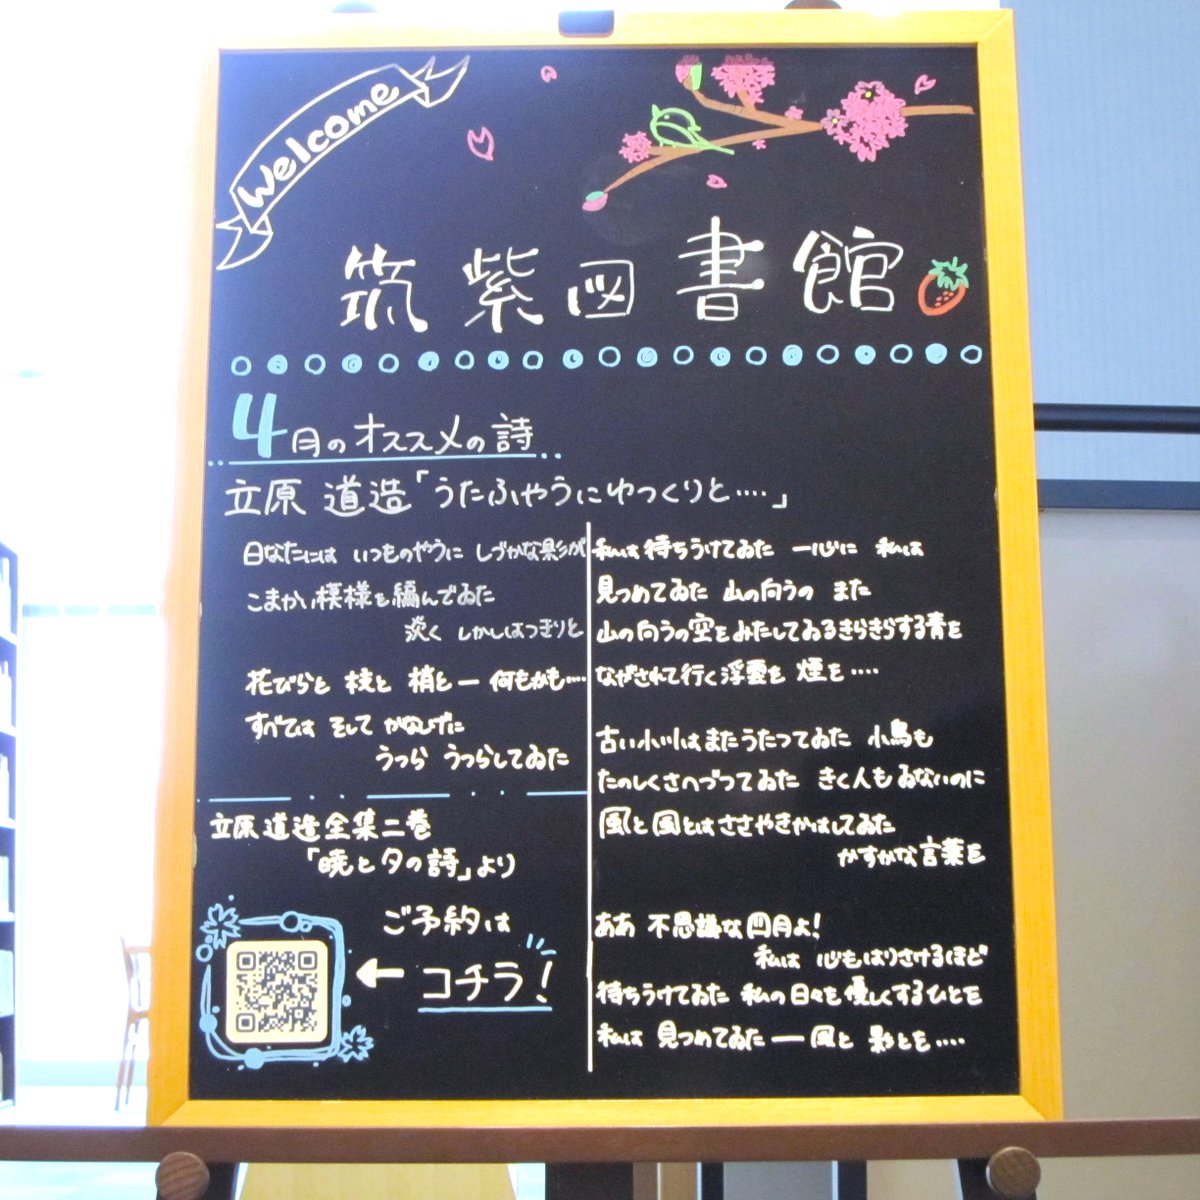 Welcome
筑紫図書館
4月のオススメの詩
立原 道造「うたふやうにゆっくりと‥‥」
日なたには いつものやうに しづかな影が
こまかい模様を編んでゐた
淡く しかしはつきりと
花びらと 枝と 梢と― 何もかも‥‥
すべては そして かなしげに
うつら うつらしてゐた
立原道造全集二巻
「暁と夕の詩」より
ご予約は
コチラ!
私は待ちうけてゐた 一心に 私は
見つめてゐた 山の向うの また
山の向うの空をみたしてゐるきらきらする青を
ながされて行く浮雲を 煙を‥‥
古い小川はまたうたつてゐた 小鳥も
たのしくさへづつてゐた きく人もゐないのに
風と風とはささやきかはしてゐた
かすかな言葉を
ああ 不思議な四月よ!
私は 心もはりさけるほど
待ちうけてゐた 私の日々を優しくするひとを
私は 見つめてゐた ― 風と 影とを‥‥